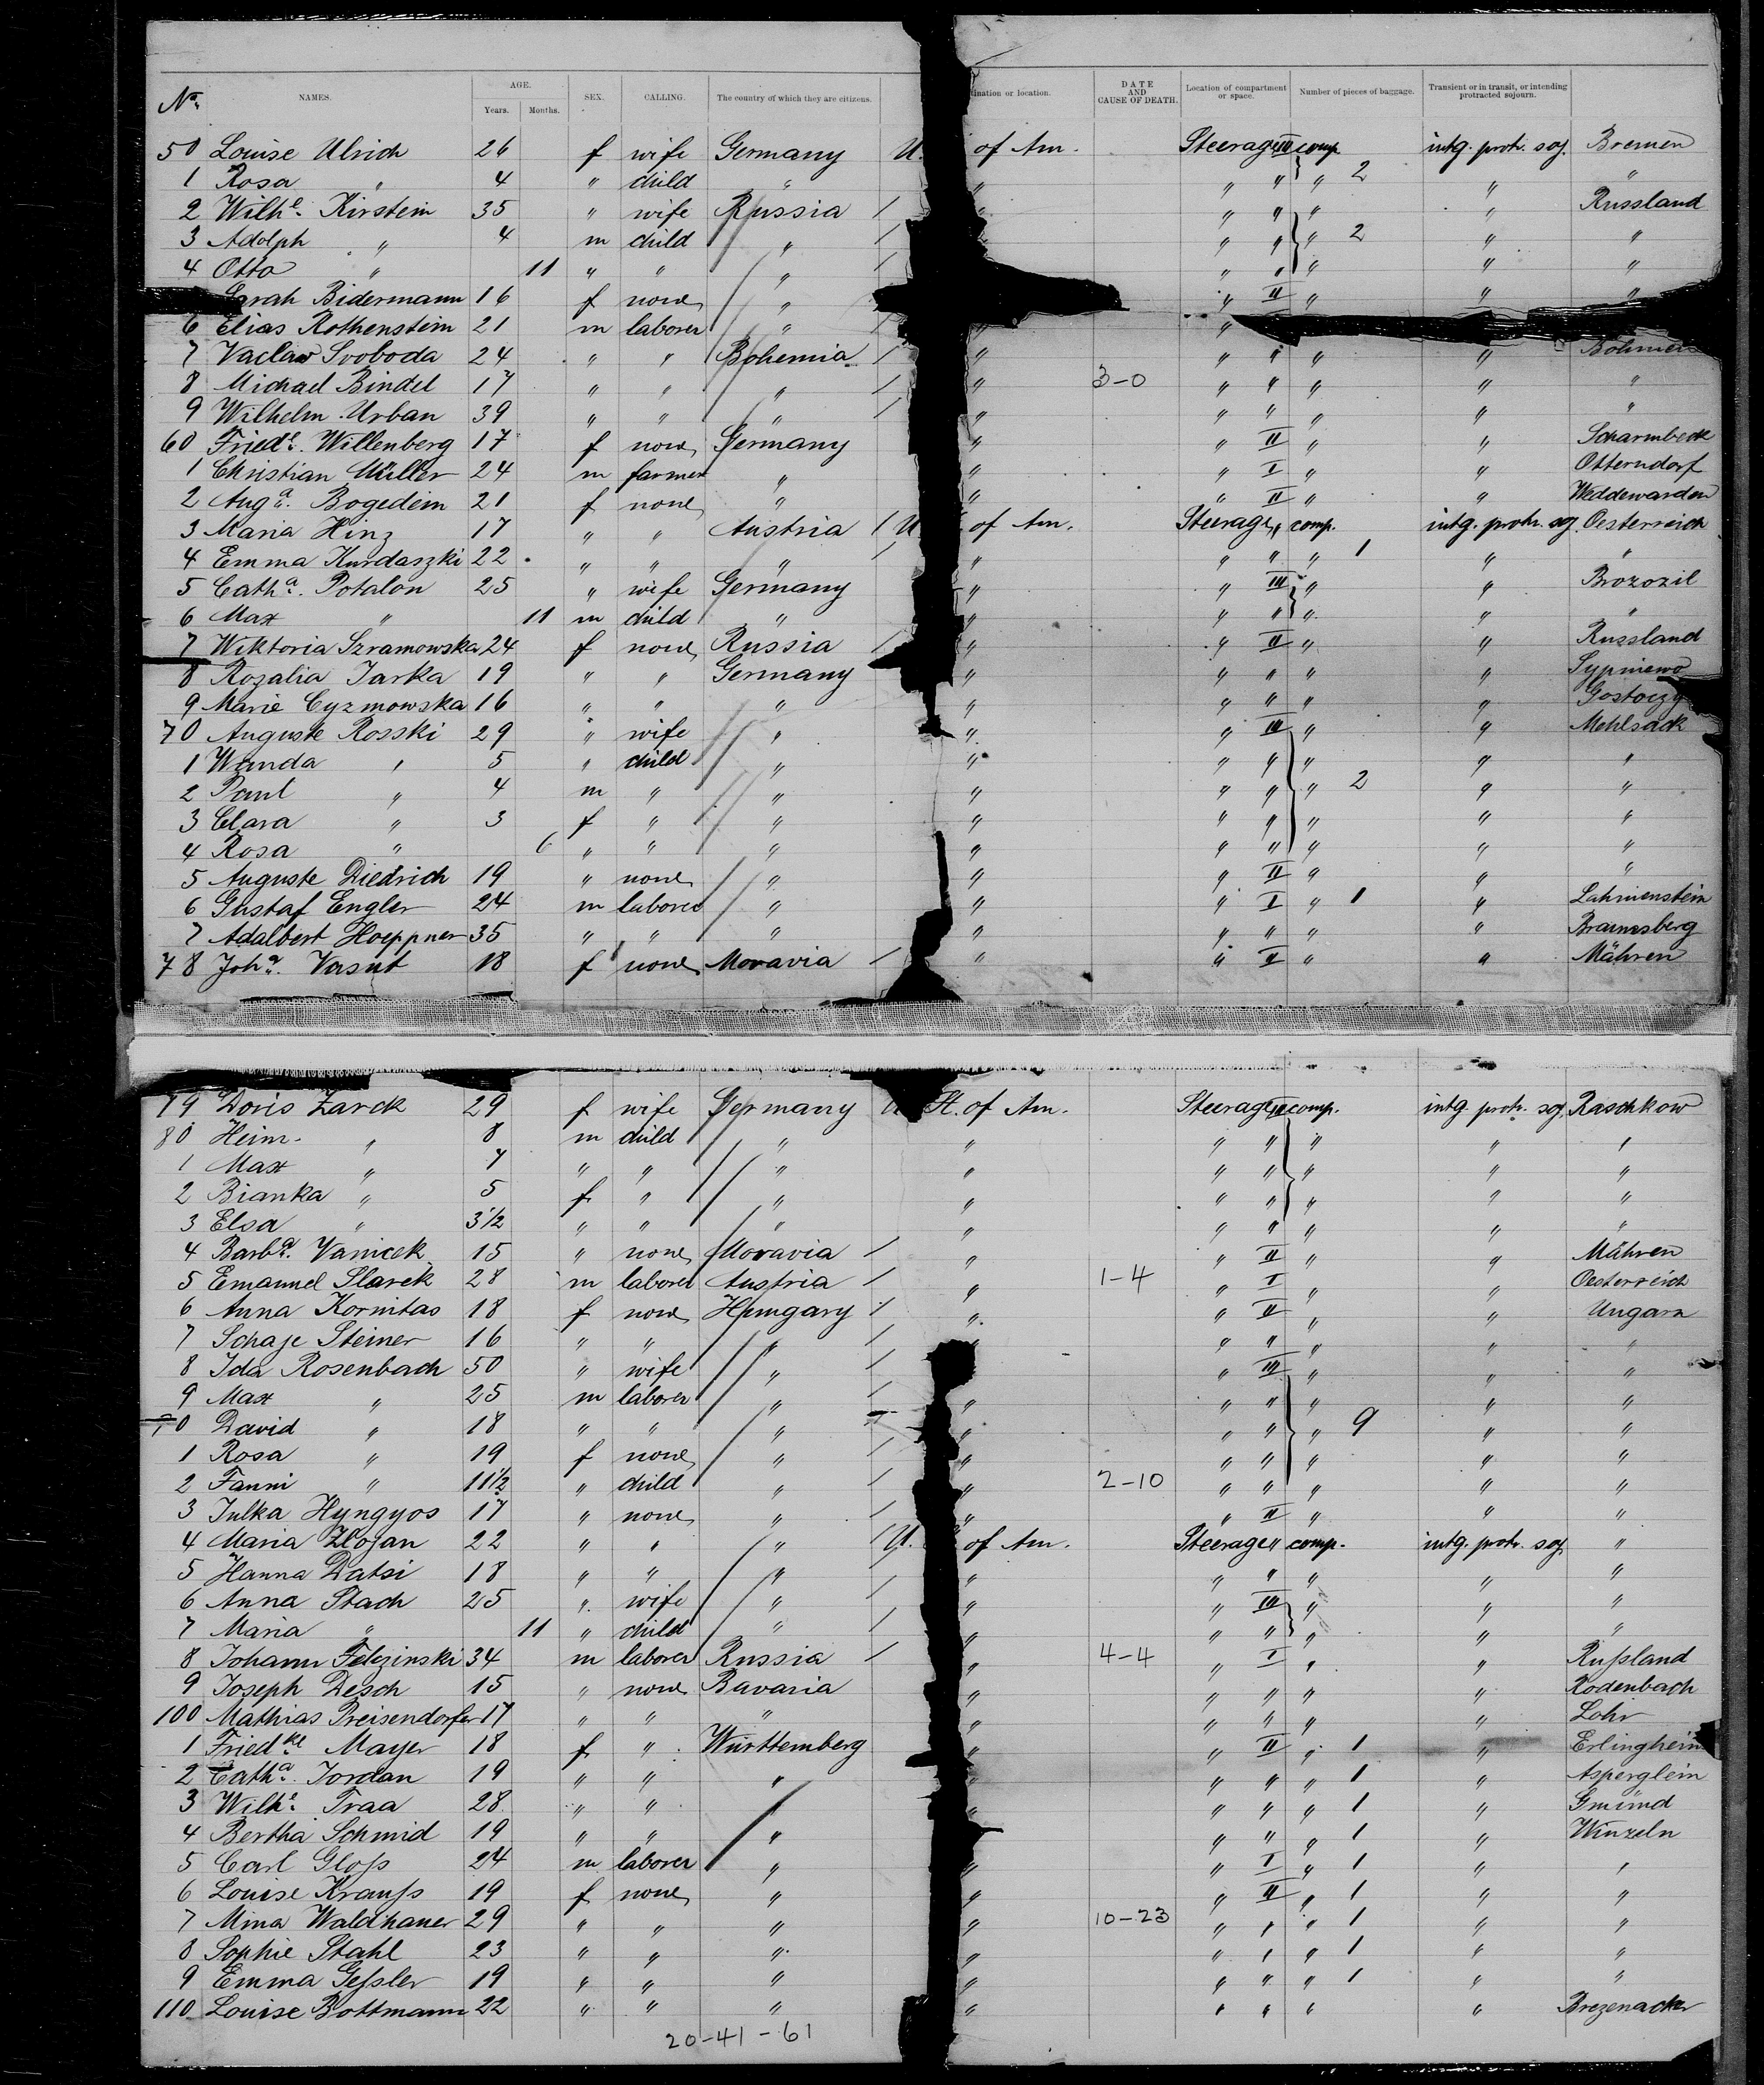 No. NAMES. AGE. Years. Months. SEX. CALLING. The country of which they are citizens. ination or location. DATE AND CAUSE OF DEATH. Location of compartment or space. Number of pieces of baggage. Transient or in transit, or intending protracted sojourn.
50 Louise Ulrich 26 f wife Germany U. of Am. Steerage III comp. intg. protr. soj. Bremen
1 Rosa " 4 " child " " " " " 2 " "
2 Wilhe. Kirstein 35 " wife Russia / " " " " " Russland
3 Adolph " 4 m child " / " " " " 2 " "
4 Otto " 11 " " " / " " " " "
Sarah Bidermann 16 f none " / " II " " "
6 Elias Rothenstein 21 m laborer " / " "
7 Vaclav Svoboda 24 " " Bohemia / " " " " " Böhmen
8 Michael Bindel 17 " " " / " 3-0 " " " " "
9 Wilhelm Urban 39 " " " / " " " " " "
60 Friede. Willenberg 17 f none Germany " " II " " Scharmbeck
1 Christian Müller 24 m farmer " " " I " " Otterndorf
2 Auga. Bogedein 21 f none " " " II " " Weddewarden
3 Maria Hinz 17 " " Austria / U of Am. Steerage " comp. intg. protr. soj. Oesterreich
4 Emma Kurdaszki 22 " " " / " " " " 1 " "
5 Catha. Potalon 25 " wife Germany " " III " " Brozozil
6 Max " 11 m child " " " " " " "
7 Wiktoria Szramowska 24 f none Russia / " " II " " Russland
8 Rozalia Jarka 19 " " Germany " " " " " Sypniewo
9 Marie Cyzmowska 16 " " " " " " " Gostoczy
70 Auguste Rosski 29 " wife " " " III " " Mehlsack
1 Wanda " 5 " child " " " " " " "
2 Paul " 4 m " " " " " " 2 " "
3 Clara " 3 f " " " " " " " "
4 Rosa " 6 " " " " " " " " "
5 Auguste Diedrich 19 " none " " " II " " "
6 Gustaf Engler 24 m laborer " " " I " 1 " Lahnienstein
7 Adalbert Hoeppner 35 " " " " " " " " Braunsberg
78 Joha. Vasut 18 f none Moravia / " " II " " Mähren
79 Doris Zarck 29 f wife Germany U St. of Am. Steerage III comp. intg. protr. soj. Raschkow
80 Heim. " 8 m child " " " " " " "
1 Max " 7 " " " " " " " " "
2 Bianka " 5 f " " " " " " " "
3 Elsa " 3 1/2 " " " " " " " " "
4 Barba. Vanicek 15 " none Moravia / " " II " " Mähren
5 Emanuel Slarek 28 m laborer Austria / " 1-4 " I " " Oesterreich
6 Anna Kornitas 18 f none Hungary / " " II " " Ungarn
7 Schaje Steiner 16 " " " / " " " " "
8 Ida Rosenbach 50 " wife " / " III " " "
9 Max " 25 m laborer " / " " " " " "
90 David " 18 " " " " " " " 9 " "
1 Rosa " 19 f none " / " " " " " "
2 Fanni " 11 1/2 " child " / " 2-10 " " " " "
3 Julka Hyngyos 17 " none " / " " II " " "
4 Maria Zlojan 22 " " " / U. of Am. Steerage " comp. intg. protr. soj. "
5 Hanna Datsi 18 " " " / " " " " " "
6 Anna Stach 25 " wife " / " " III " " "
7 Maria " 11 " child " / " " " " " "
8 Johann Felezinski 34 m laborer Russia / " 4-4 " I " " Rußland
9 Joseph Desch 15 " none Bavaria " " " " " Rodenbach
100 Mathias Preisendorfer 17 " " " " " " " " Lohr
1 Friedke. Mayer 18 f " Württemberg " " II " 1 " Erlingheim
2 Catha. Jordan 19 " " " " " " " 1 " Asperglein
3 Wilhe. Traa 28 " " " " " " " 1 " Gmünd
4 Bertha Schmid 19 " " " " " " 1 " Winzeln
5 Carl Gloß 24 m laborer " " " I " 1 " "
6 Louise Krauß 19 f none " " " II " 1 " "
7 Mina Waldhauer 29 " " " " 10-23 " " " 1 " "
8 Sophie Stahl 23 " " " " " " " 1 " "
9 Emma Geßler 19 " " " " " " " 1 " "
110 Louise Bottmann 22 " " " " " " " " Brezenacker
20-41-61